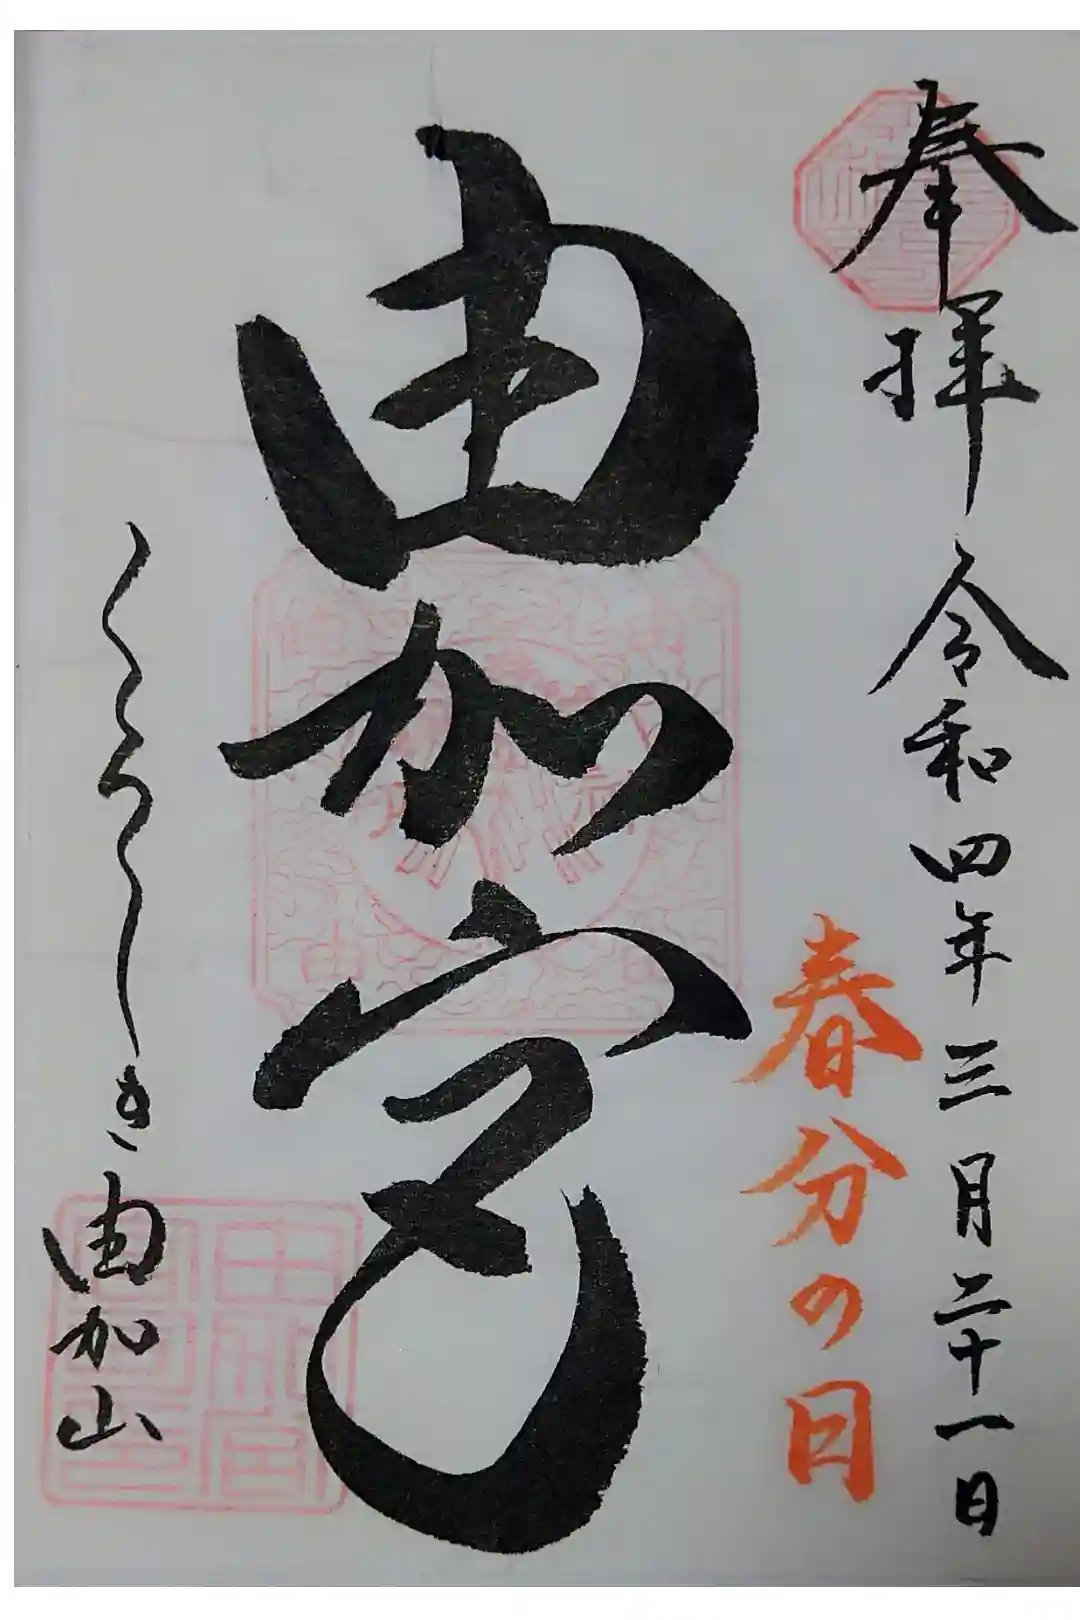 奉拝 令和四年三月二十一日
春分の日
由加宮
くらしき由加山